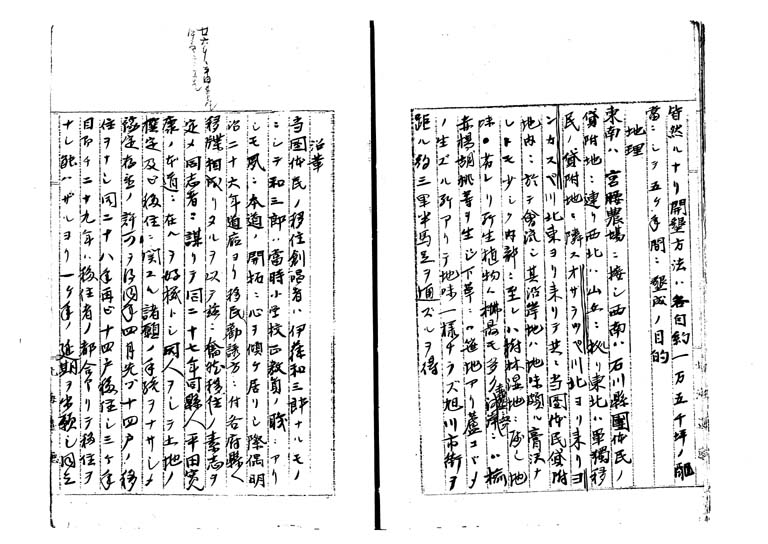 皆然ルナリ開墾方法ハ各自約一万五千坪ノ配
当ニシテ五ケ年間ニ墾成ノ目的
地理
東南ハ宮腰農場ニ接シ西南ハ石川縣團体民ノ
貸附地ニ連リ西北ハ山岳ニ拠リ東北ハ單獨移
民ノ貸附地ニ隣スオサラッペ川北ヨリ来リヨ
ンカスペ川北東ヨリ来リテ共ニ当団体民貸附
地内ニ於テ會流シ其沿岸地ハ地味頗ル膏沃ナ
レトモ少シク内部ニ至レハ樹林湿地ニ属シ地
味 若レリ所生植物ハ楢最モ多ク沼澤ニハ楊
赤楊胡桃等ヲ生シ下草ニハ笹地アリ蘆ヨモギ
ノ生ズル所アリテ地味一様ナラズ旭川市街ヲ
距ル約三里半馬足ヲ通ズルヲ得
沿革
当団体民ノ移住創唱者ハ伊藤和三郎ナルモノ
ニシテ和三郎ハ當時小学校正教員ノ職ニアリ
シモ夙ニ本道ノ開拓ニ心ヲ傾ケ居リシ際偶明
治二十六年道廳ヨリ移民勧誘方ニ付各府縣ヘ
移牒相成リタルヲ以テ茲ニ奮然移住ノ素志ヲ
定メ同志者ニ謀リテ同二十七年同縣人平田寛
康ノ本道ニ在ルヲ好機トシ同人ヲシテ土地ノ
撰定及ヒ移住ニ関スル諸願ノ手続ヲナサシメ
豫定存置ノ許可ヲ得同年四月先ヅ十四戸ノ移
住ヲナシ同二十八年再ビ十四戸移住シ三ケ年
目即チ二十九年ハ移住者ノ都合アリテ移住ヲ
ナシ能ハザルヨリ一ケ年ノ延期ヲ出願シ同三